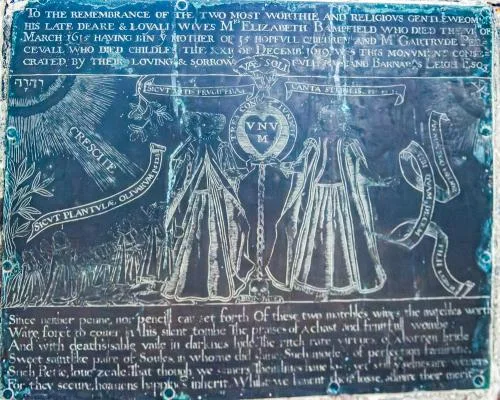 TO THE REMEMBRANCE OF THE TWO MOST WORTHIE AND RELIGIOVS GENTLEWEOM
HIS LATE DEARE & LOVALL WIVES Mrs ELIZABETH BAMPFIELD WHO DIED THE VI OF
MARCH 1615 HAVING BIN Y MOTHER OF 15 HOPEFVLL CHILDREN AND M GARTRVDE PER
CEVALL WHO DIED CHILDLES THE XXI OF DECEMB THIS MONVMENT CONSE
CRATED BY THEIR LOVING & SORROWFVLL HVSBAND BARNABAS LEIGH ESQ
VÆ SOLI
יהוה
SICVT VITIS FRVGIFERA
TANTA STERILIS
CRESCITE
VNV
M
SICVT PLANTVLÆ OLIVARVM
QVAM
Since neither penne, nor pencill can set forth Of these two matchles wives the matchles worth
Ware forct to cover in this silent tombe The praises of a chast and fruitfull wombe
And with deaths sable vaile in darknes hide The ritch rare virtues of a barren bride
Sweet saintlike paire of Soules, in whome did shine Such models of perfection
Such Pietie, love, zeale, That though we
For they secure, heavens happines inherit Whilst we lament their losse, admire their merit